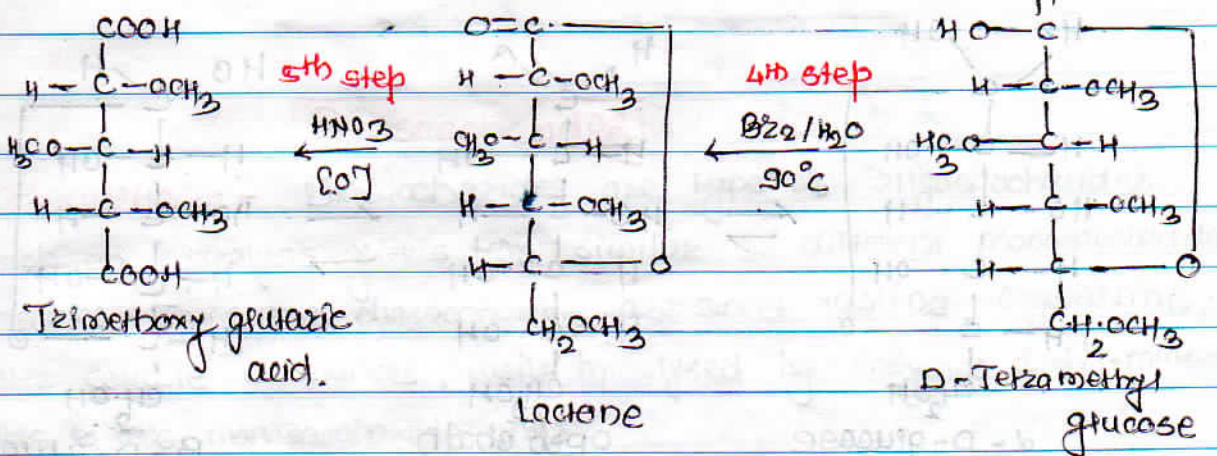 COOH
H – C – OCH3
H3CO – C – H
H – C – OCH3
COOH
Trimethoxy glutaric
acid.
5th step
HNO3
[O]
O=C
H – C – OCH3
CH3O – C – H
H – C – OCH3
H – C – O
CH2OCH3
Lactone
4th step
Br2/H2O
90°C
HO – C
H – C – OCH3
H3CO – C – H
H – C – OCH3
H – C – O
CH2·OCH3
D-Tetramethyl
glucose